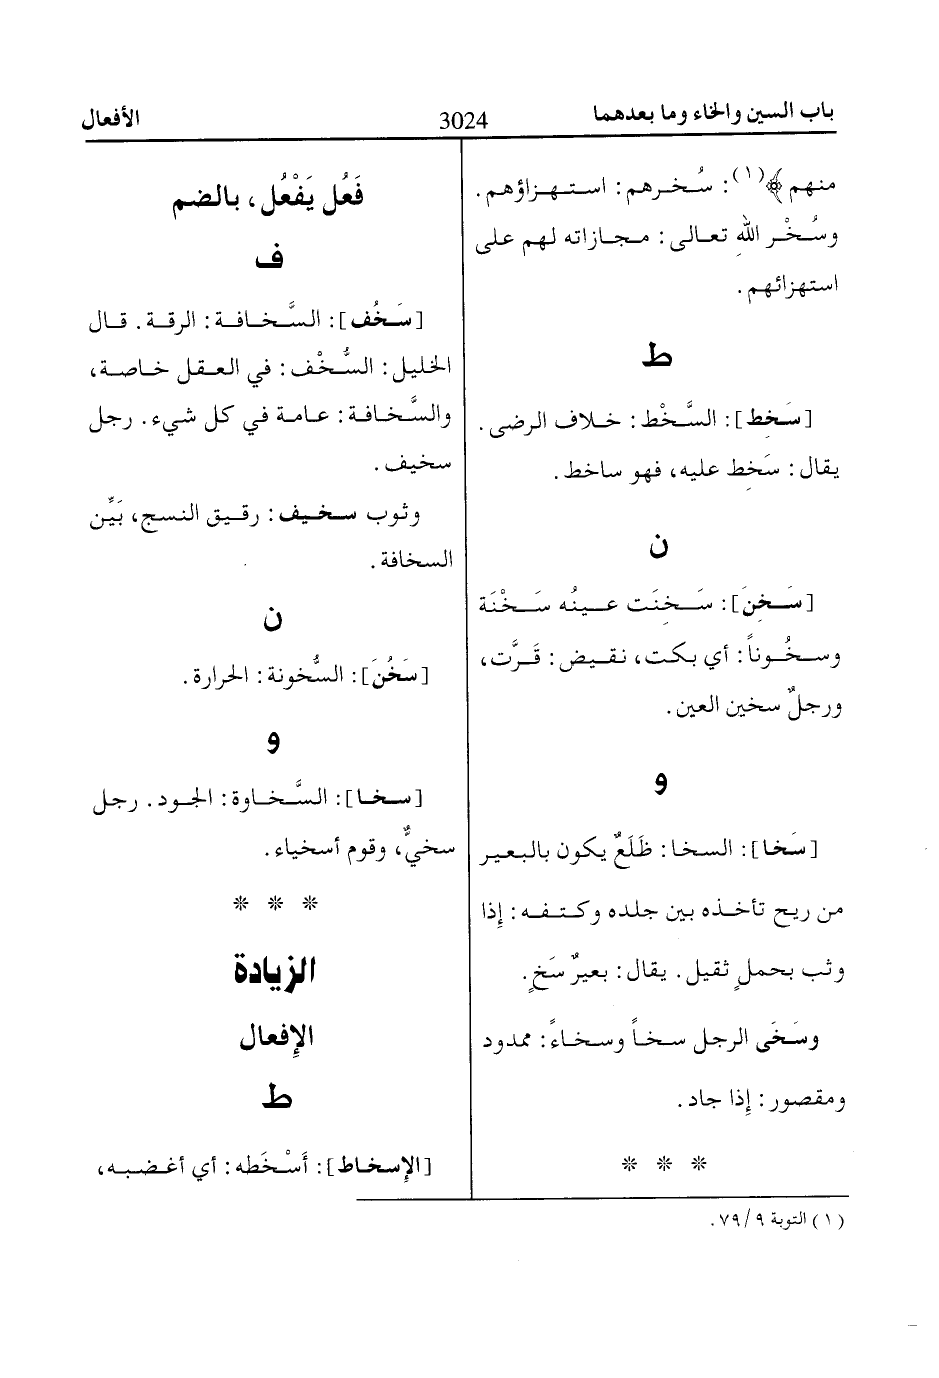 باب السين والخاء وما بعدهما
3024
الأفعال
منهم ﴾(١): سُخرهم: استهزاؤهم.
وسُخْر اللهِ تعالى: مجازاته لهم على
استهزائهم.
ط
[سَخِط]: السَّخْط: خلاف الرضى.
يقال: سَخِط عليه، فهو ساخط.
ن
[سَخِنَ]: سَخِنَت عينُه سَخْنَة
وسخُوناً: أي بكت، نقيض: قَرَّت،
ورجلٌ سخين العين.
و
[سَخا]: السخا: ظَلَعٌ يكون بالبعير
من ريح تأخذه بين جلده وكتفه: إذا
وثب بحملٍ ثقيل. يقال: بعيرٌ سَخٍ.
وسَخَى الرجل سخاً وسخاءً: ممدود
ومقصور: إذا جاد.
* * *
فَعُل يَفْعُل، بالضم
ف
[سَخُف]: السَّخافة: الرقة. قال
الخليل: السُّخْف: في العقل خاصة،
والسَّخافة: عامة في كل شيء. رجل
سخيف.
وثوب سخيف: رقيق النسج، بَيِّن
السخافة.
ن
[سَخُنَ]: السُّخونة: الحرارة.
و
[سخا]: السَّخاوة: الجود. رجل
سخيٌّ، وقوم أسخياء.
* * *
الزيادة
الإفعال
ط
[الإسخاط]: أَسْخَطه: أي أغضبه،
(١) التوبة ٩/ ٧٩.